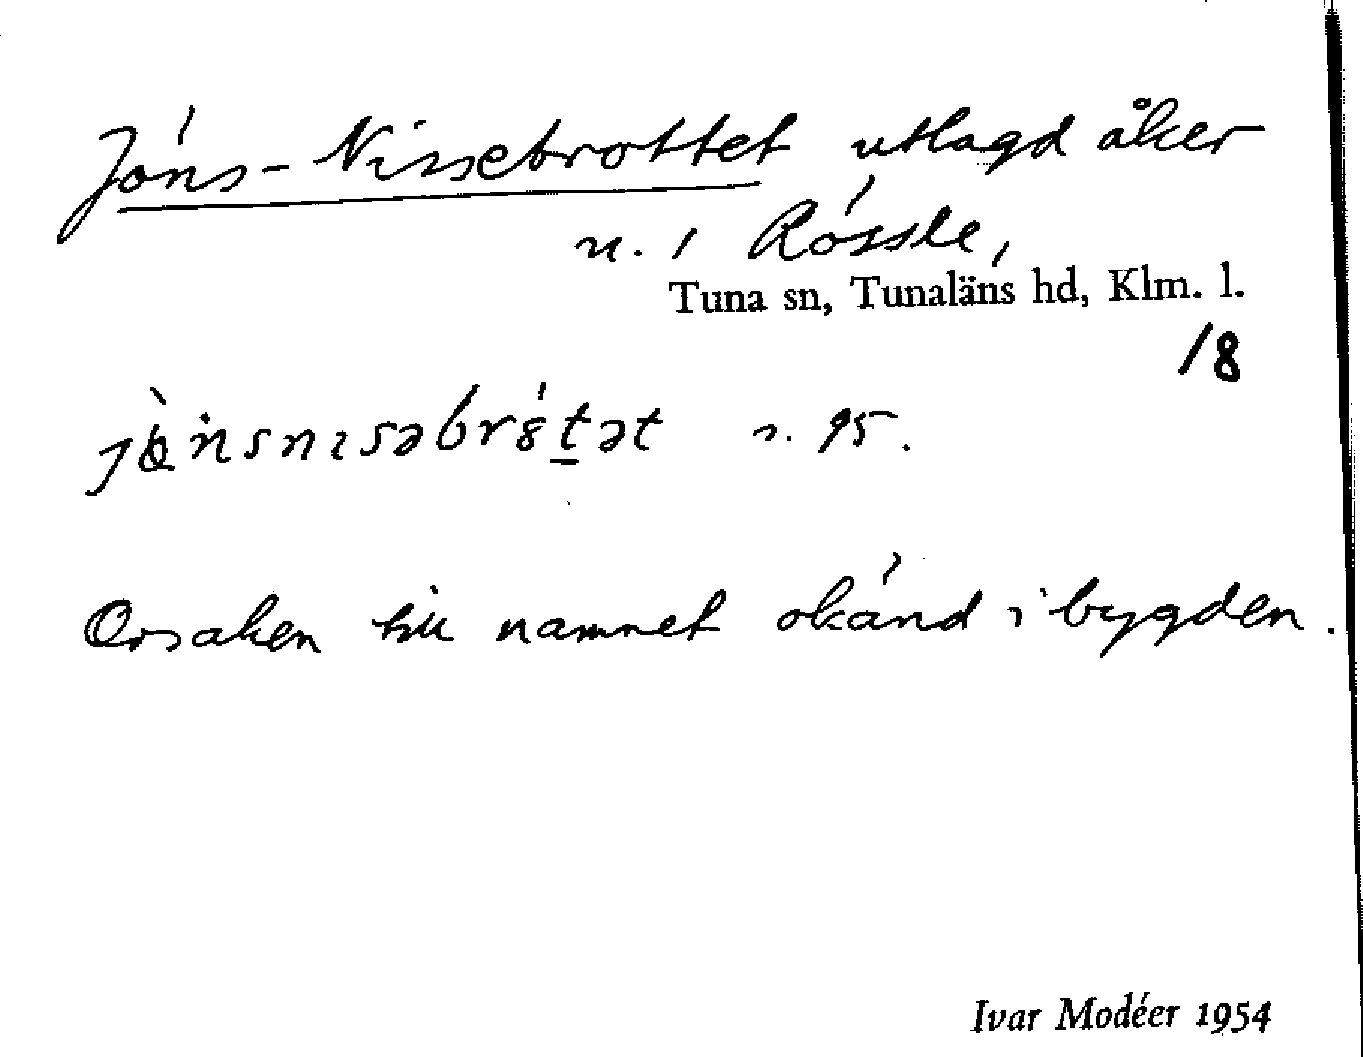 Jöns-Nissebrottet utlagd åker
n. 1 Rössle,
Tuna sn, Tunaläns hd, Klm. l.
18
n. 95.
Orsaken till namnet okänd i bygden.
Ivar Modéer 1954